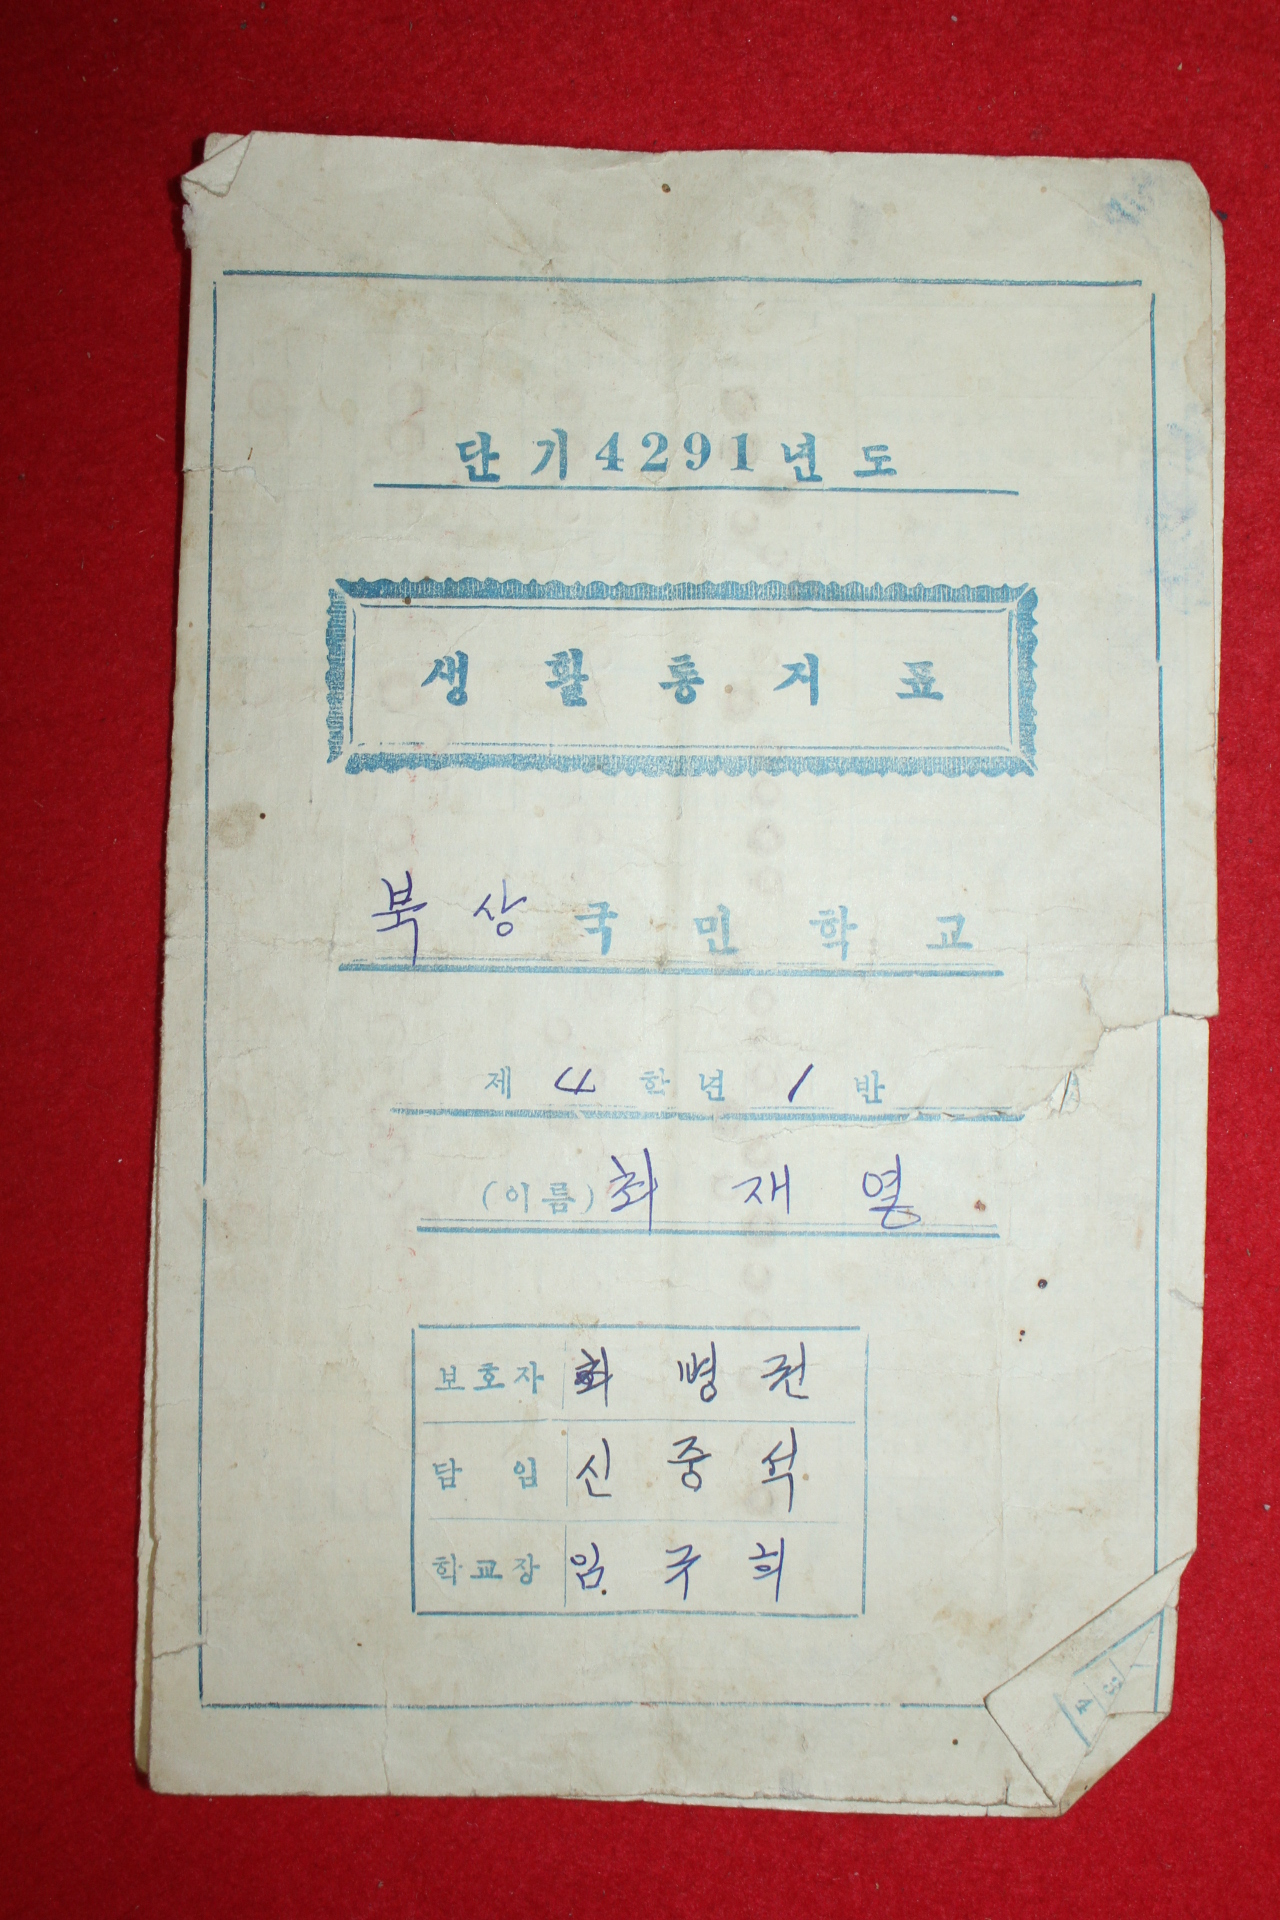 단기 4291년도
생활통지표
북상국민학교
제 4 학년 1 반
(이름) 최재열
보호자 최병권
담임 신중석
학교장 임구희
3
4